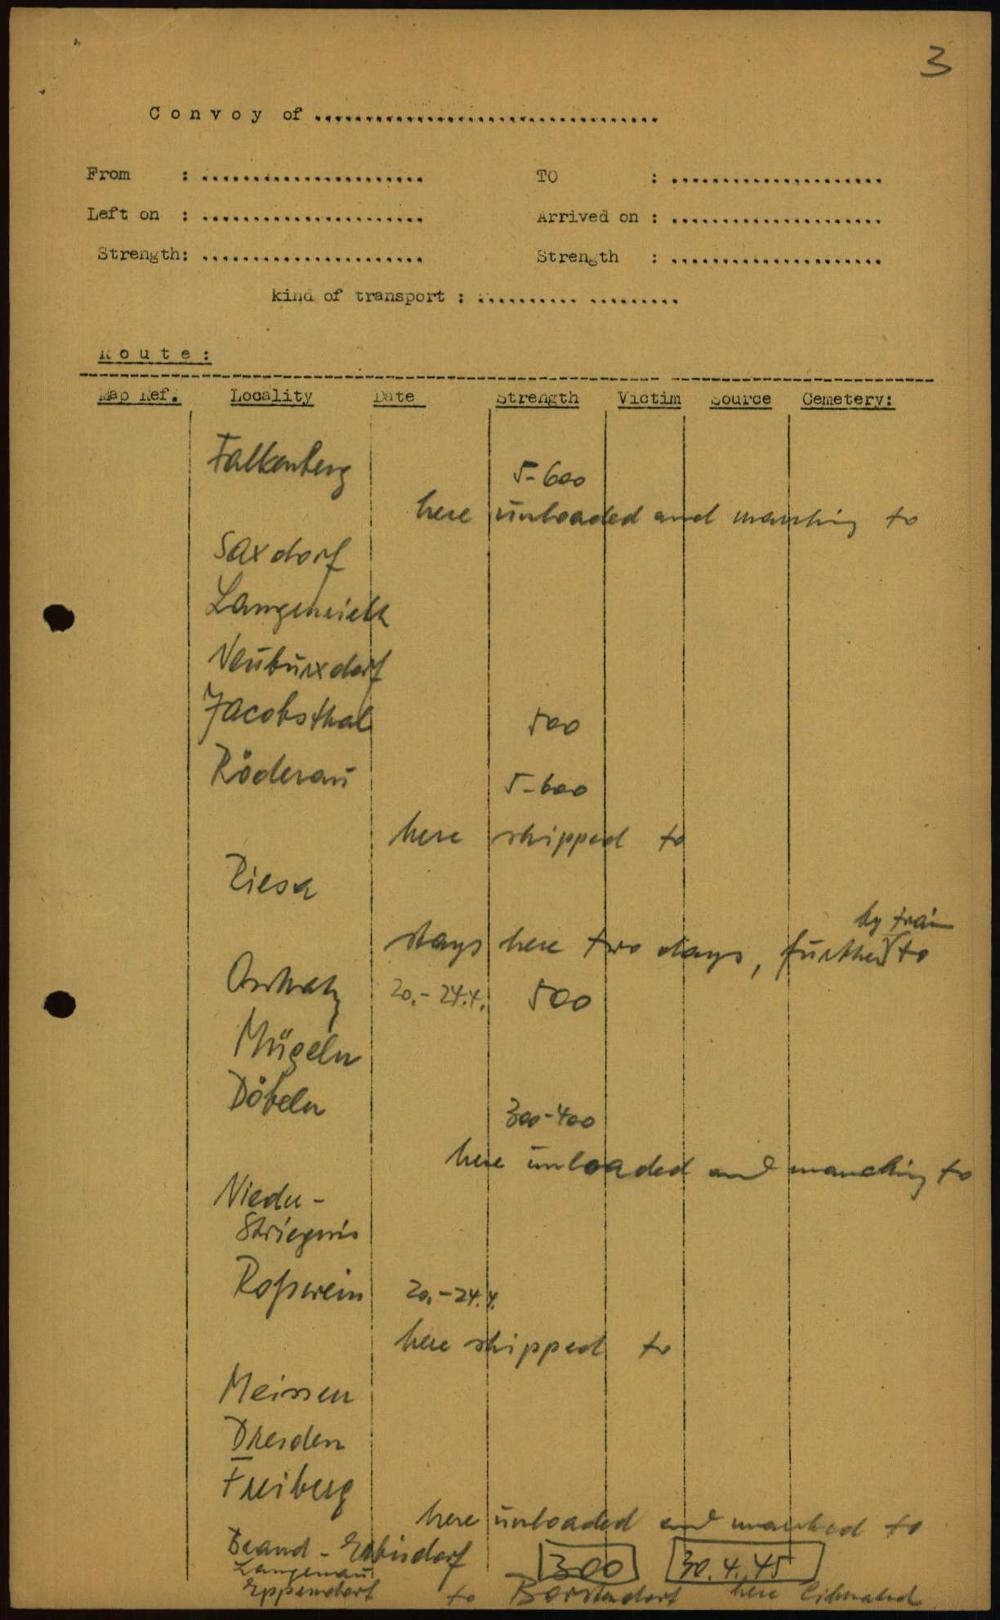 3
Convoy of .................................
From : ..................... TO : ....................
Left on : ..................... Arrived on : ....................
Strength: ..................... Strength : ....................
kind of transport : .......... .........
Route:
Map Ref. Locality Date Strength Victim Source Cemetery:
Falkenberg 5-600
here unloaded and marching to
Saxdorf
Langenrieth
Neuburxdorf
Jacobsthal 500
Röderau 5-600
here shipped to
Riesa
by train
stays here two days, further to
Oschatz 20.-24.4. 500
Mügeln
Döbeln 300-400
here unloaded and marching to
Nieder-
Striegnis
Roßwein 20.-24.4.
here shipped to
Meissen
Dresden
Freiberg
here unloaded and marched to
Brand-Erbisdorf 300 30.4.45
Langenau
Eppendorf to Borstendorf here liberated